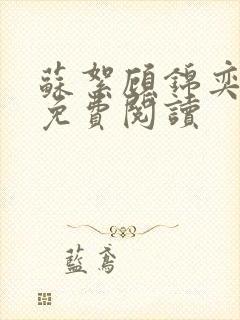 蘇絮顧錦奕
免費閱讀
藍鳶